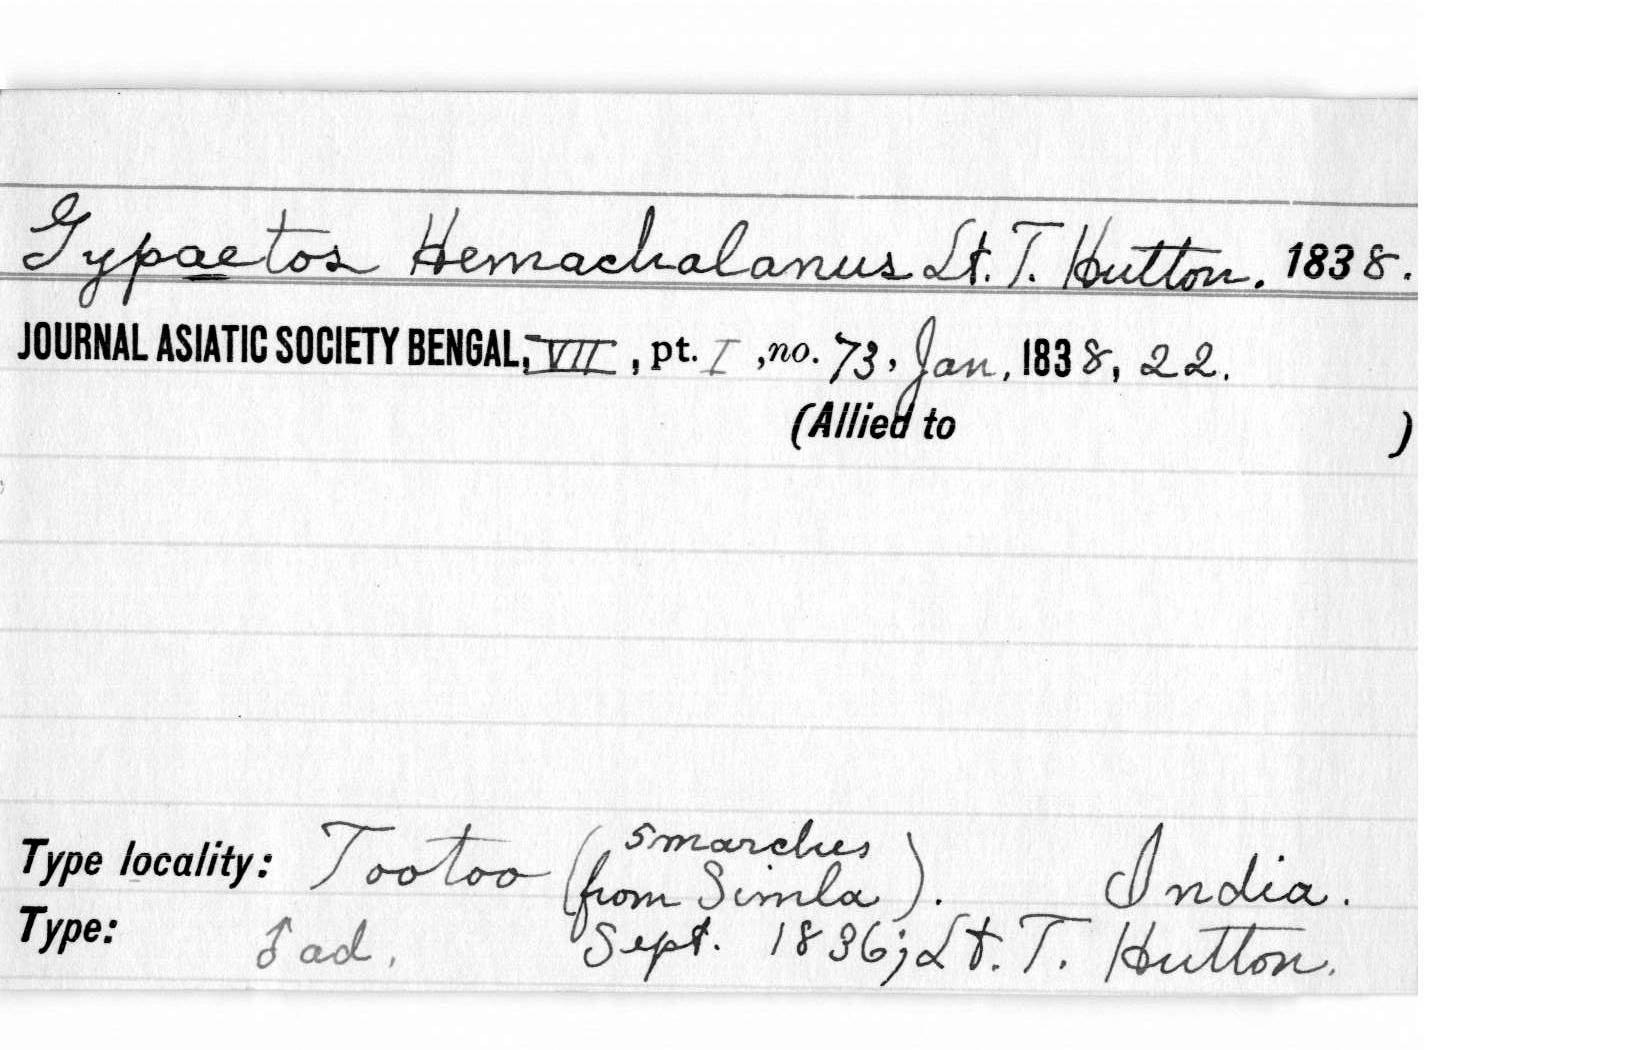 Gypaetos Hemachalanus Lt. T. Hutton. 1838.
JOURNAL ASIATIC SOCIETY BENGAL, VII, pt. I, no. 73, Jan, 1838, 22.
(Allied to )
Type locality: Tootoo (5 marches from Simla). India.
Type: ♂ ad. Sept. 1836; Lt. T. Hutton.